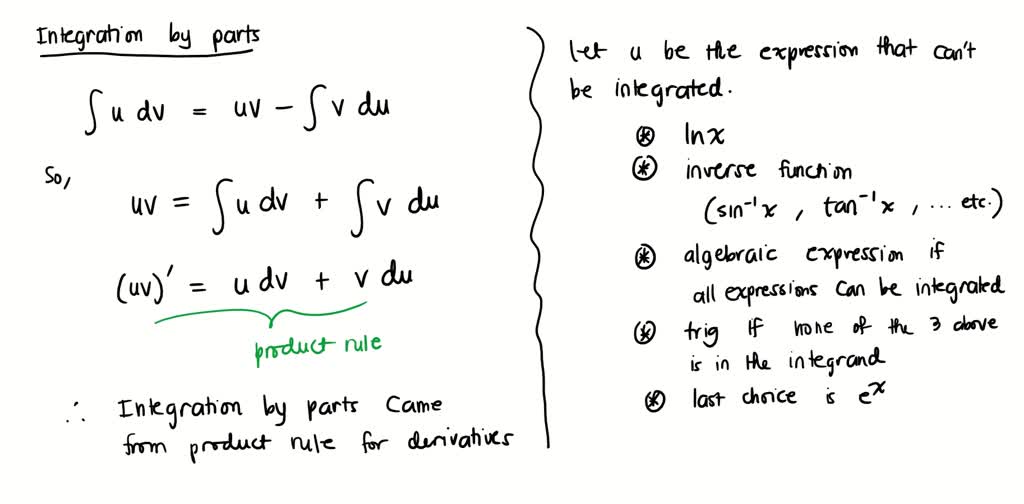 Integration by parts
∫ u dv = uv − ∫ v du
So,
uv = ∫ u dv + ∫ v du
(uv)′ = u dv + v du
product rule
∴ Integration by parts came
from product rule for derivatives
let u be the expression that can't
be integrated.
⊛ ln x
⊛ inverse function
(sin⁻¹x , tan⁻¹x , ... etc.)
⊛ algebraic expression if
all expressions can be integrated
⊛ trig if none of the 3 above
is in the integrand
⊛ last choice is eˣ